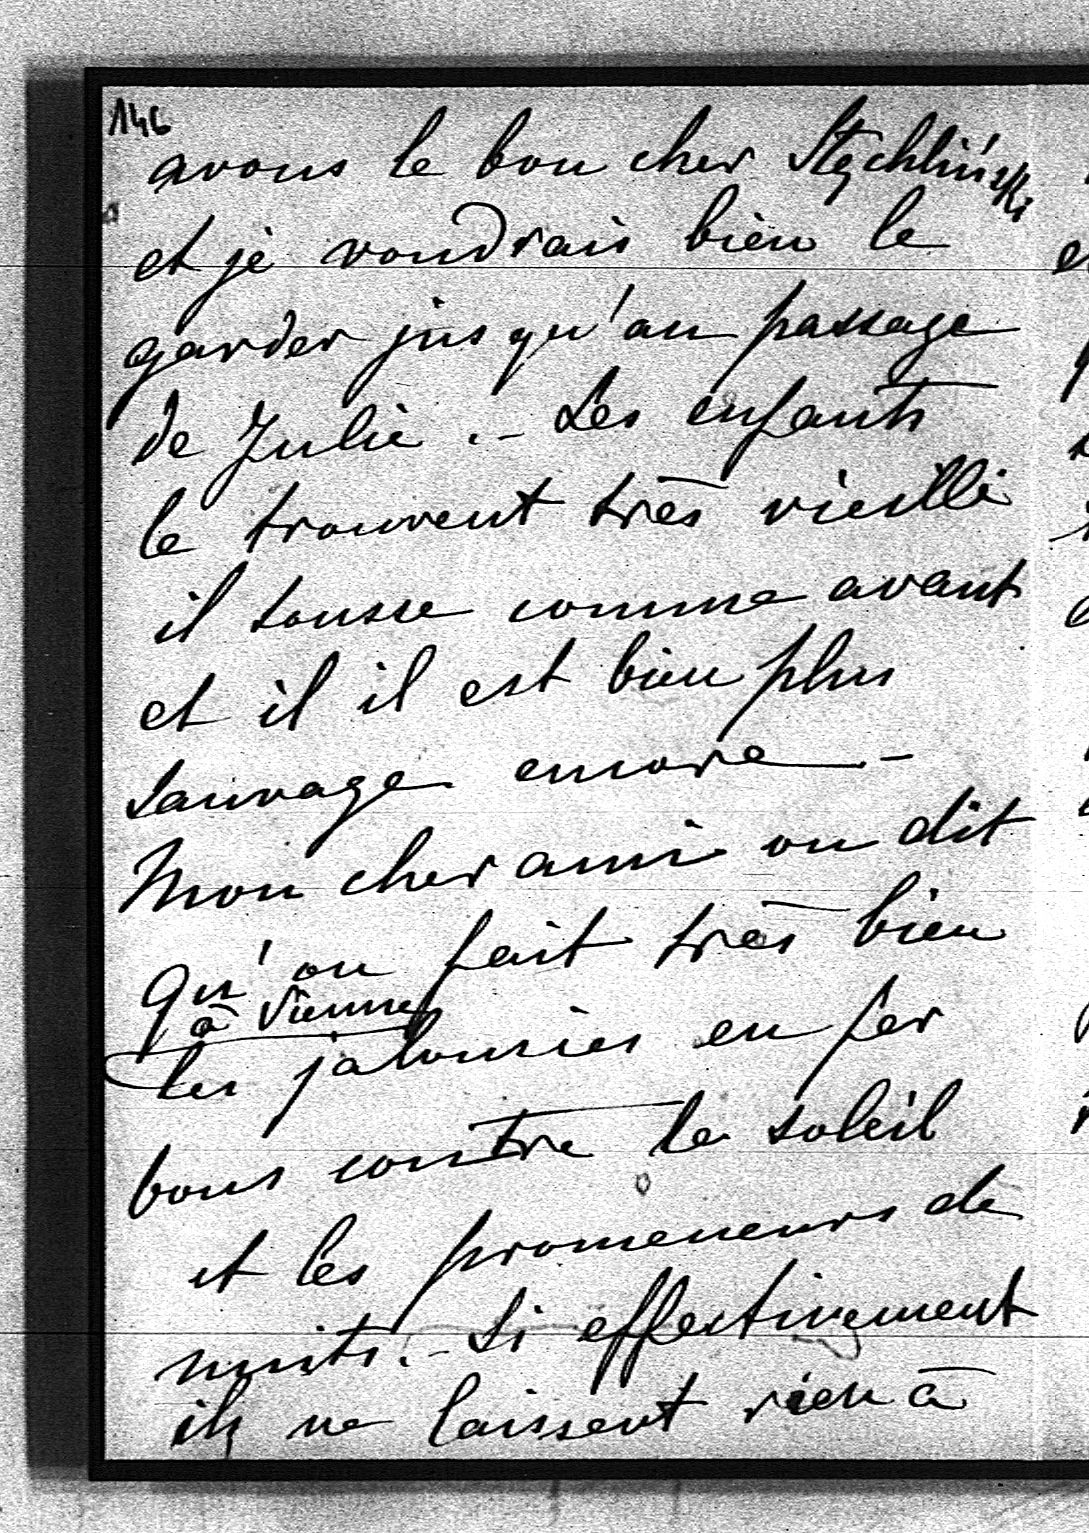 146
avons le bon cher Stychliński
et je voudrais bien le
garder jusqu'au passage
de Julie. – Les enfants
le trouvent très vieilli
il tousse comme avant
et il il est bien plus
sauvage encore –
Mon cher ami on dit
qu'on fait très bien
à Vienne
les jalousies en fer
bons contre le soleil
et les promeneurs de
nuits. – Si effectivement
ils ne laissent rien à